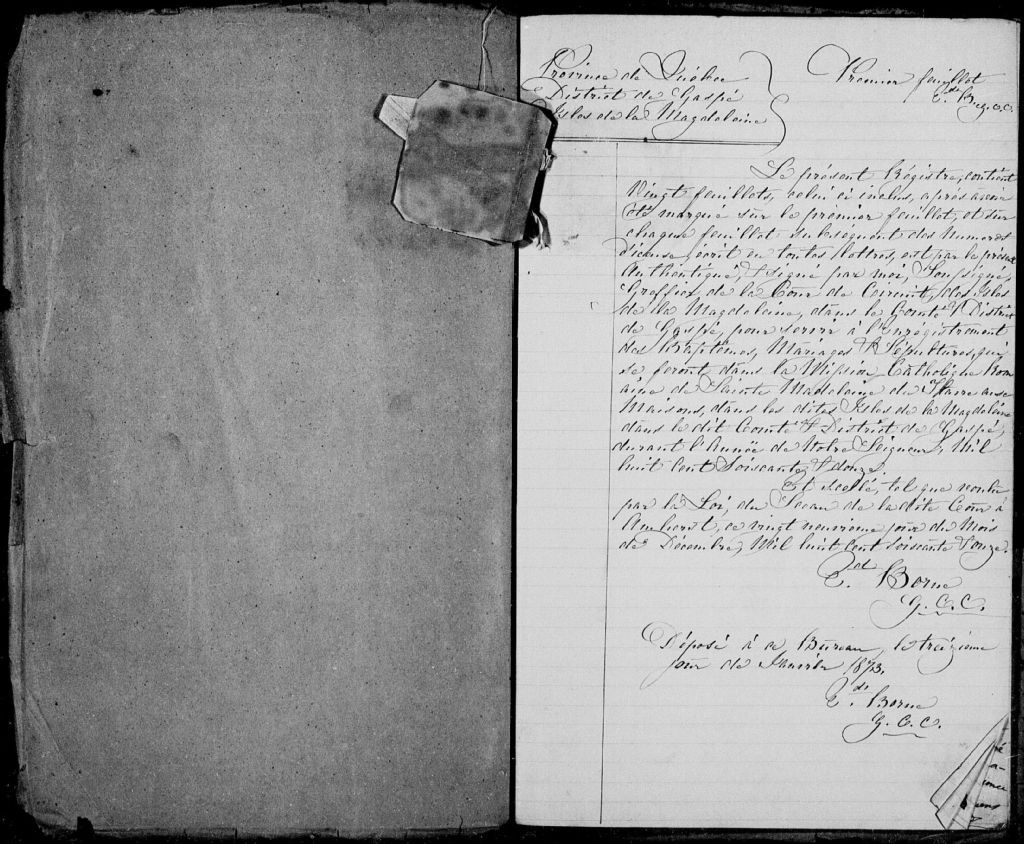 Province de Québec
District de Gaspé
Isles de la Magdeleine
Premier feuillet
Ed. B. G.C.C.
Le présent Régistre, contient
Vingt feuillets, celui ci inclus, après avoir
été marqué sur le premier feuillet, et sur
chaque feuillet subséquent des Numeros
d'iceux, écrit en toutes lettres, est par le présent
Authentiqué, & signé par moi, Soussigné,
Greffier de la Cour de Circuit, des Isles
de la Magdeleine, dans le Comté & District
de Gaspé, pour servir à l'Enrégistrement
des Baptêmes, Mariages & Sépultures, qui
se feront, dans la Mission Catholique Rom
aine de Sainte Madeleine du Havre aux
Maisons, dans les dites Isles de la Magdeleine
dans le dit Comté & District de Gaspé,
durant l'Année de Notre Seigneur, Mil
huit cent Soiscante & douze.
Et scellé, tel que voulu
par la Loi, du Sceau de la dite Cour à
Amherst, ce vingt neuvième jour du Mois
de Décembre, Mil huit cent soiscante & onze.
Ed. Borne
G.C.C.
Déposé à ce Bureau, le treizième
jour de Janvier 1873.
Ed. Borne
G.C.C.